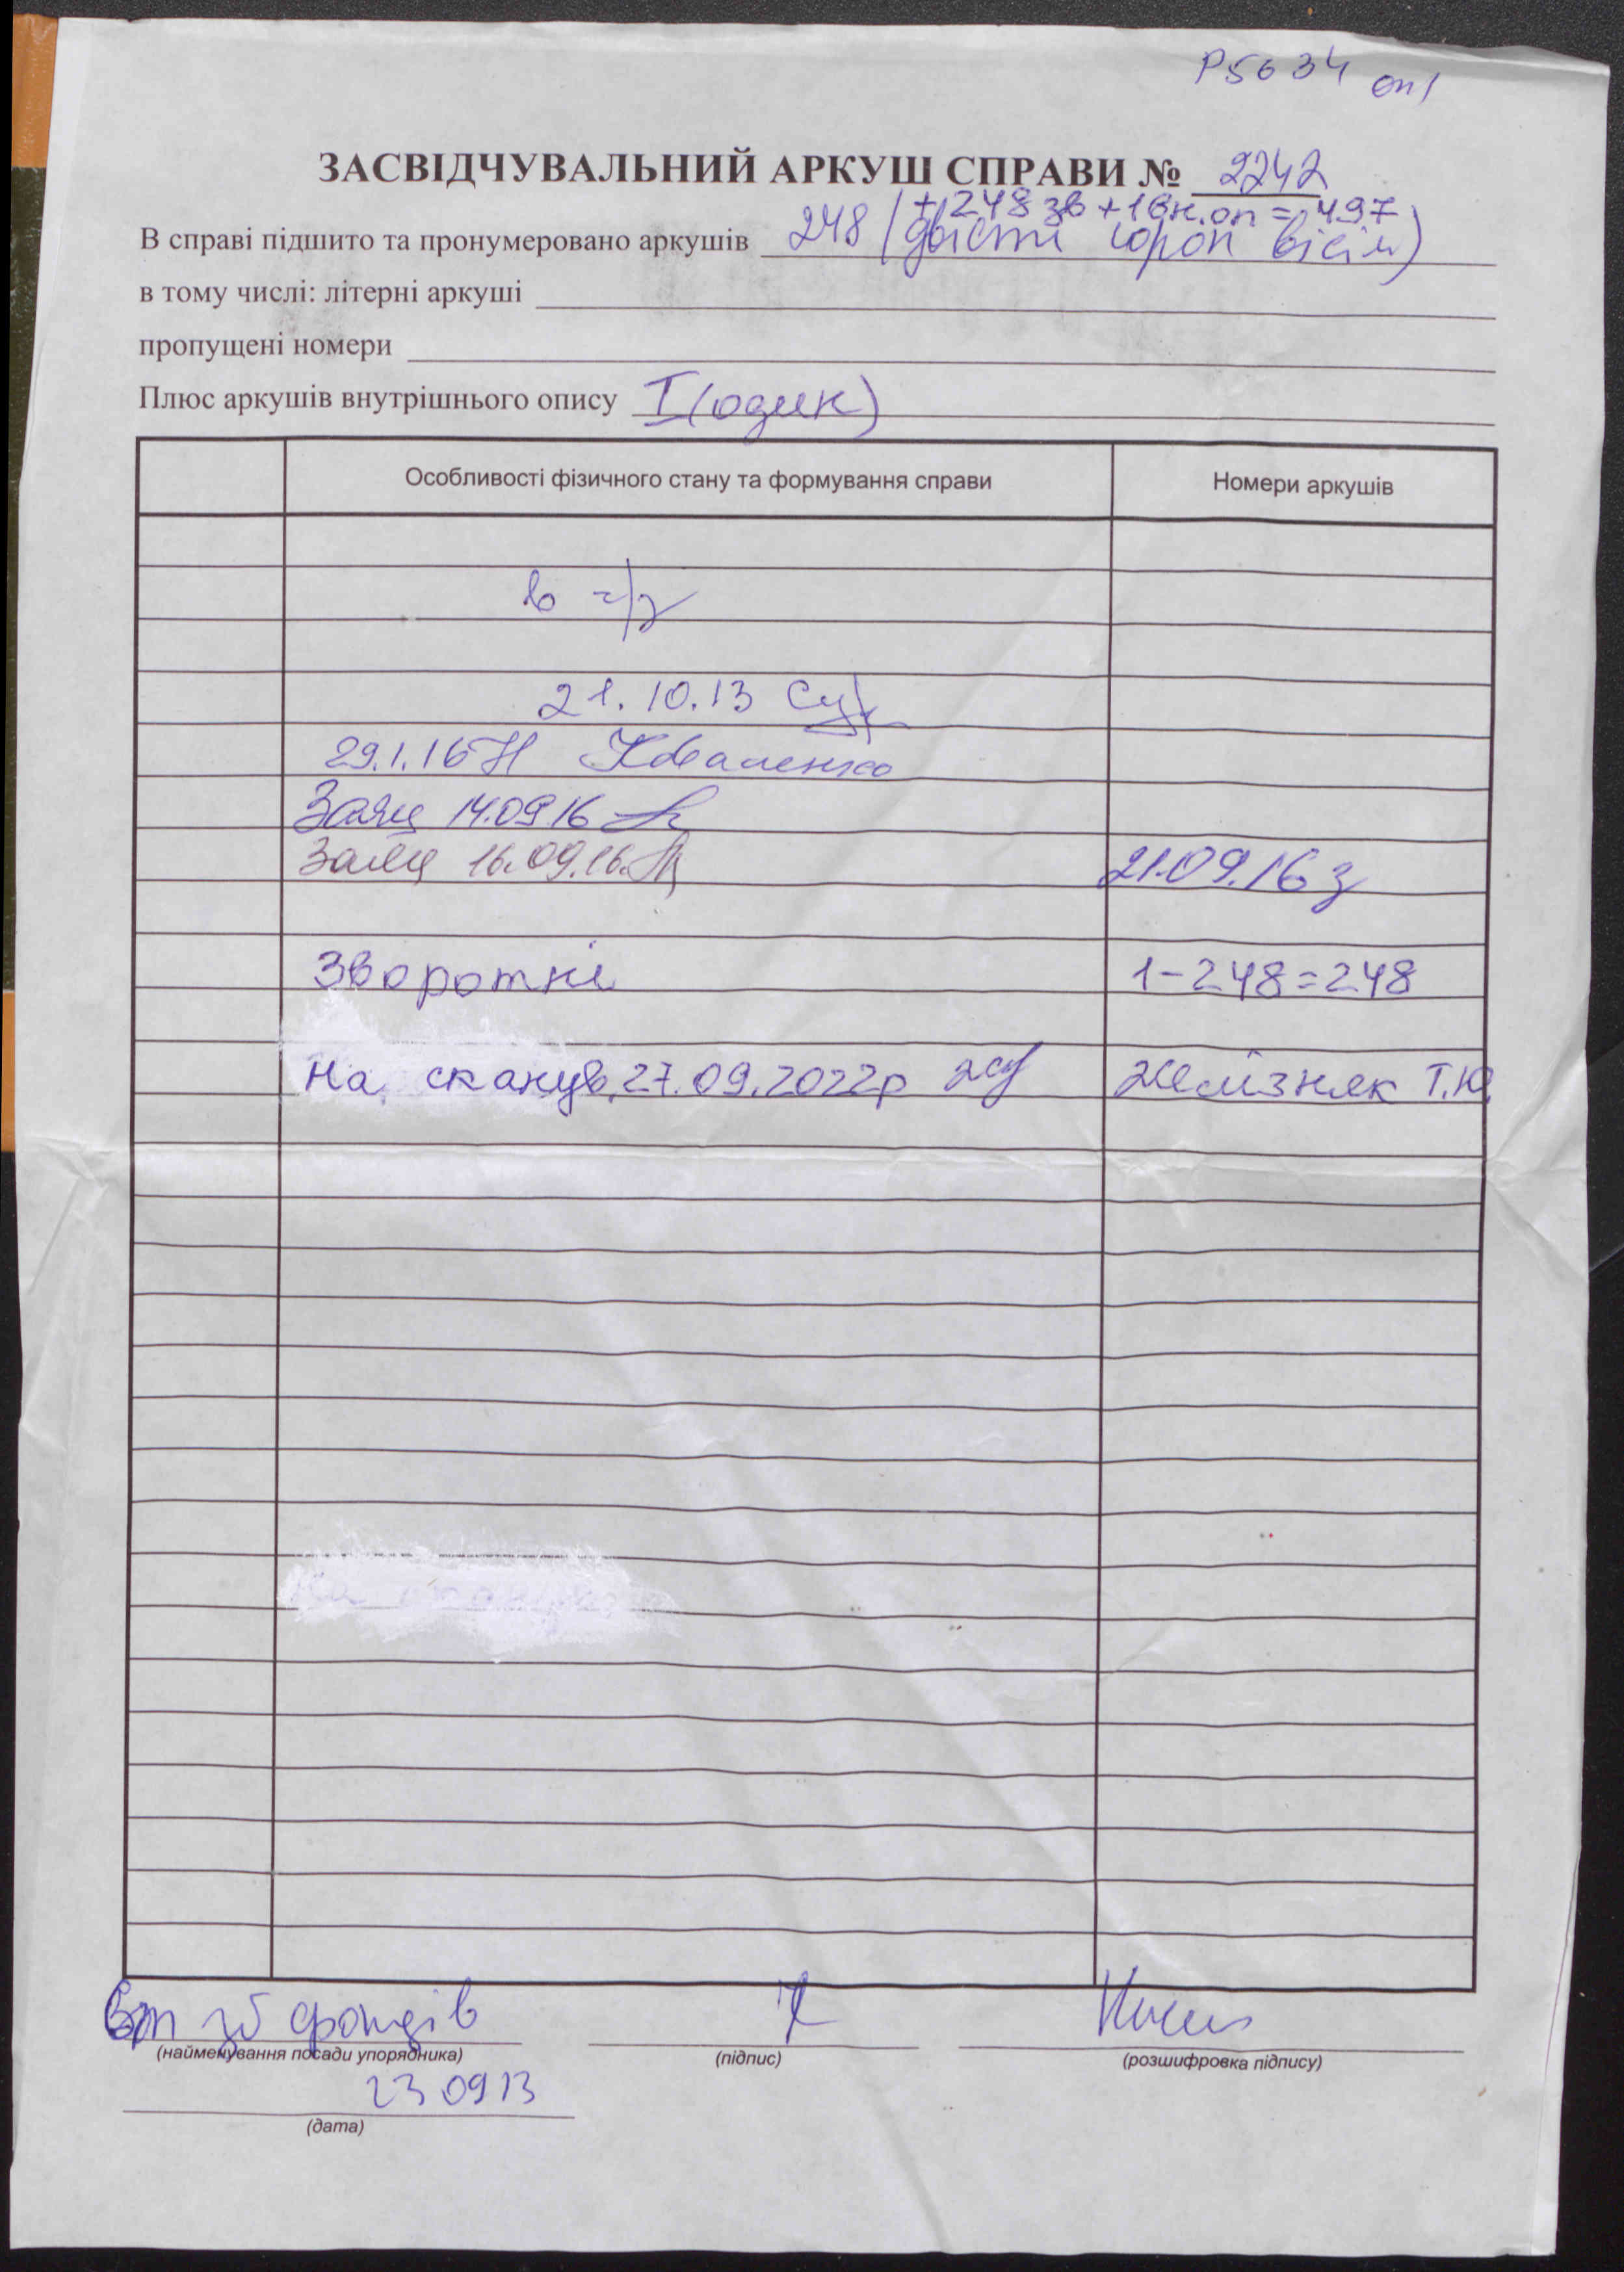 Р5634 оп1
ЗАСВІДЧУВАЛЬНИЙ АРКУШ СПРАВИ № 2242
+ 248 зв + 1 вн. оп = 497
В справі підшито та пронумеровано аркушів 248 (двісті сорок вісім)
в тому числі: літерні аркуші
пропущені номери
Плюс аркушів внутрішнього опису I (один)
Особливості фізичного стану та формування справи Номери аркушів
в ч/з
21.10.13
29.1.16 Коваленко
Заяц 14.09 16
Заяц 16.09.16. 21.09.16 з
Зворотні 1-248=248
На сканув, 27.09.2022р Желізняк Т.Ю.
зб фондів
(найменування посади упорядника) (підпис) (розшифровка підпису)
23 09 13
(дата)